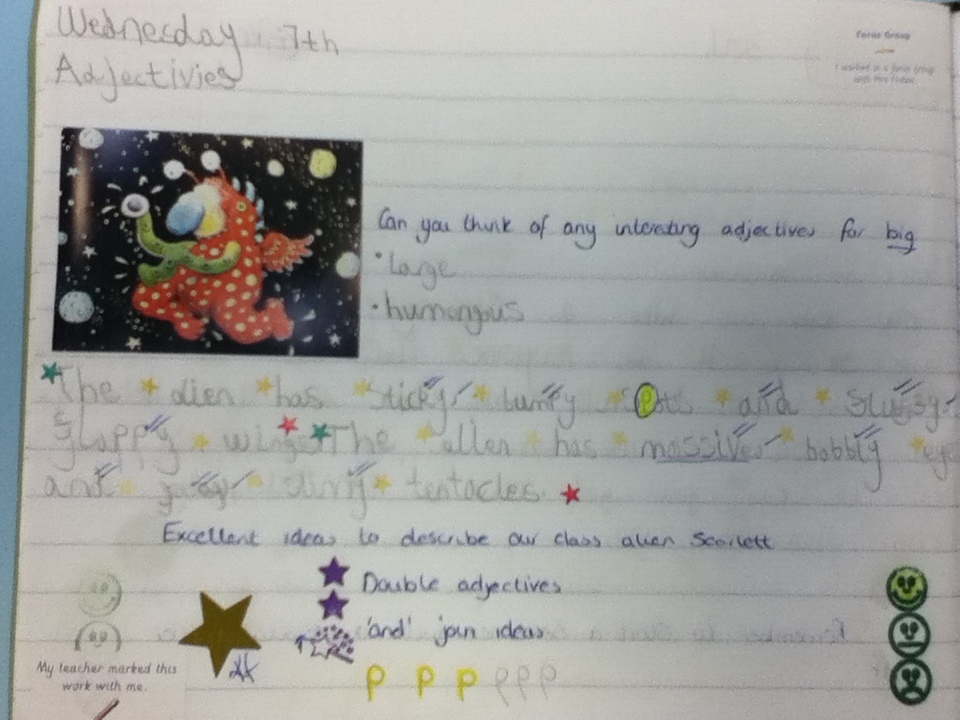 Wednesday 7th
Adjectivies
Focus Group
I worked in a focus group
with
Can you think of any interesting adjectives for big
• large
• humongus
The alien has sticky, bumpy spots and
flappy wings The alien has massive, bobbly eye
and slimy tentacles
Excellent ideas to describe our class alien Scarlett
Double adjectives
'and' join ideas
My teacher marked this
work with me.
p p p p p p